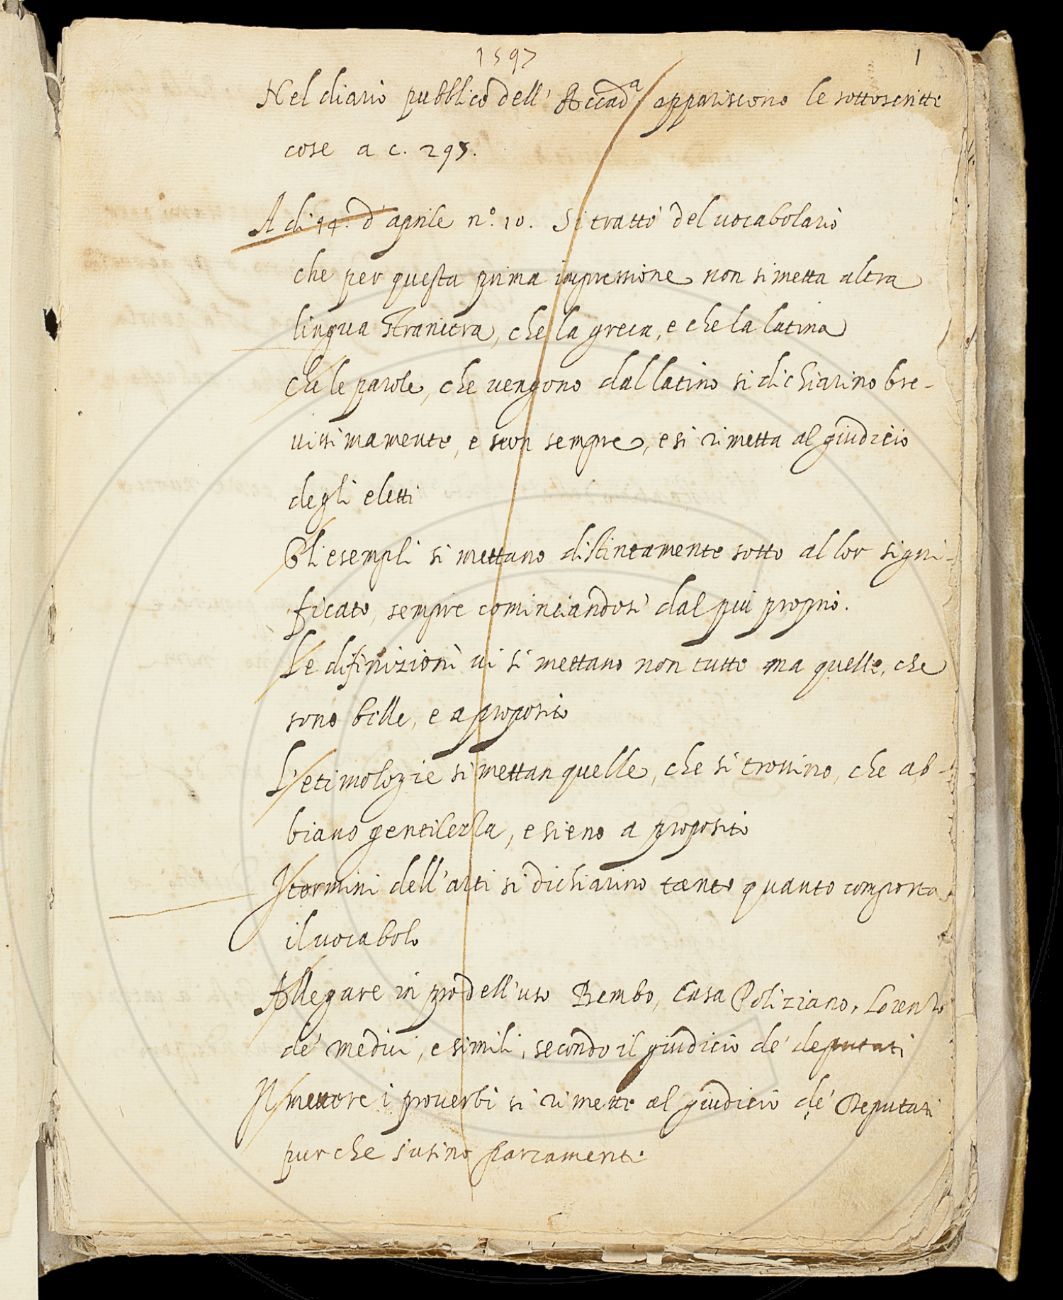 1597
1
Nel diario pubblico dell' Accad.a appariscono le sottoscritte
cose a c. 295.
A di 14. d'aprile n.o 10. Si trattò del vocabolario
che per questa prima impressione non si metta altra
lingua straniera, che la greca, e che la latina
che le parole, che vengono dal latino si dichiarino bre-
vissimamente, e non sempre, e si rimetta al giudicio
degli eletti
Gli esempli si mettano distintamente sotto al lor signi-
ficato, sempre cominciandosi dal piu proprio.
Le difinizioni vi si mettano non tutte ma quelle, che
sono belle, e a proposito
L'etimologie si mettan quelle, che si trovino, che ab-
biano gentilezza, e sieno a proposito
I termini dell'arti si dichiarino tanto quanto comporta
il vocabolo
Allegare in pro dell'uso Bembo, Casa Poliziano, Lorenzo
de' medici, e simili, secondo il giudicio de' deputati
Il mettere i proverbi si rimette al giudicio de' Deputati
purche s'usino scarsamente